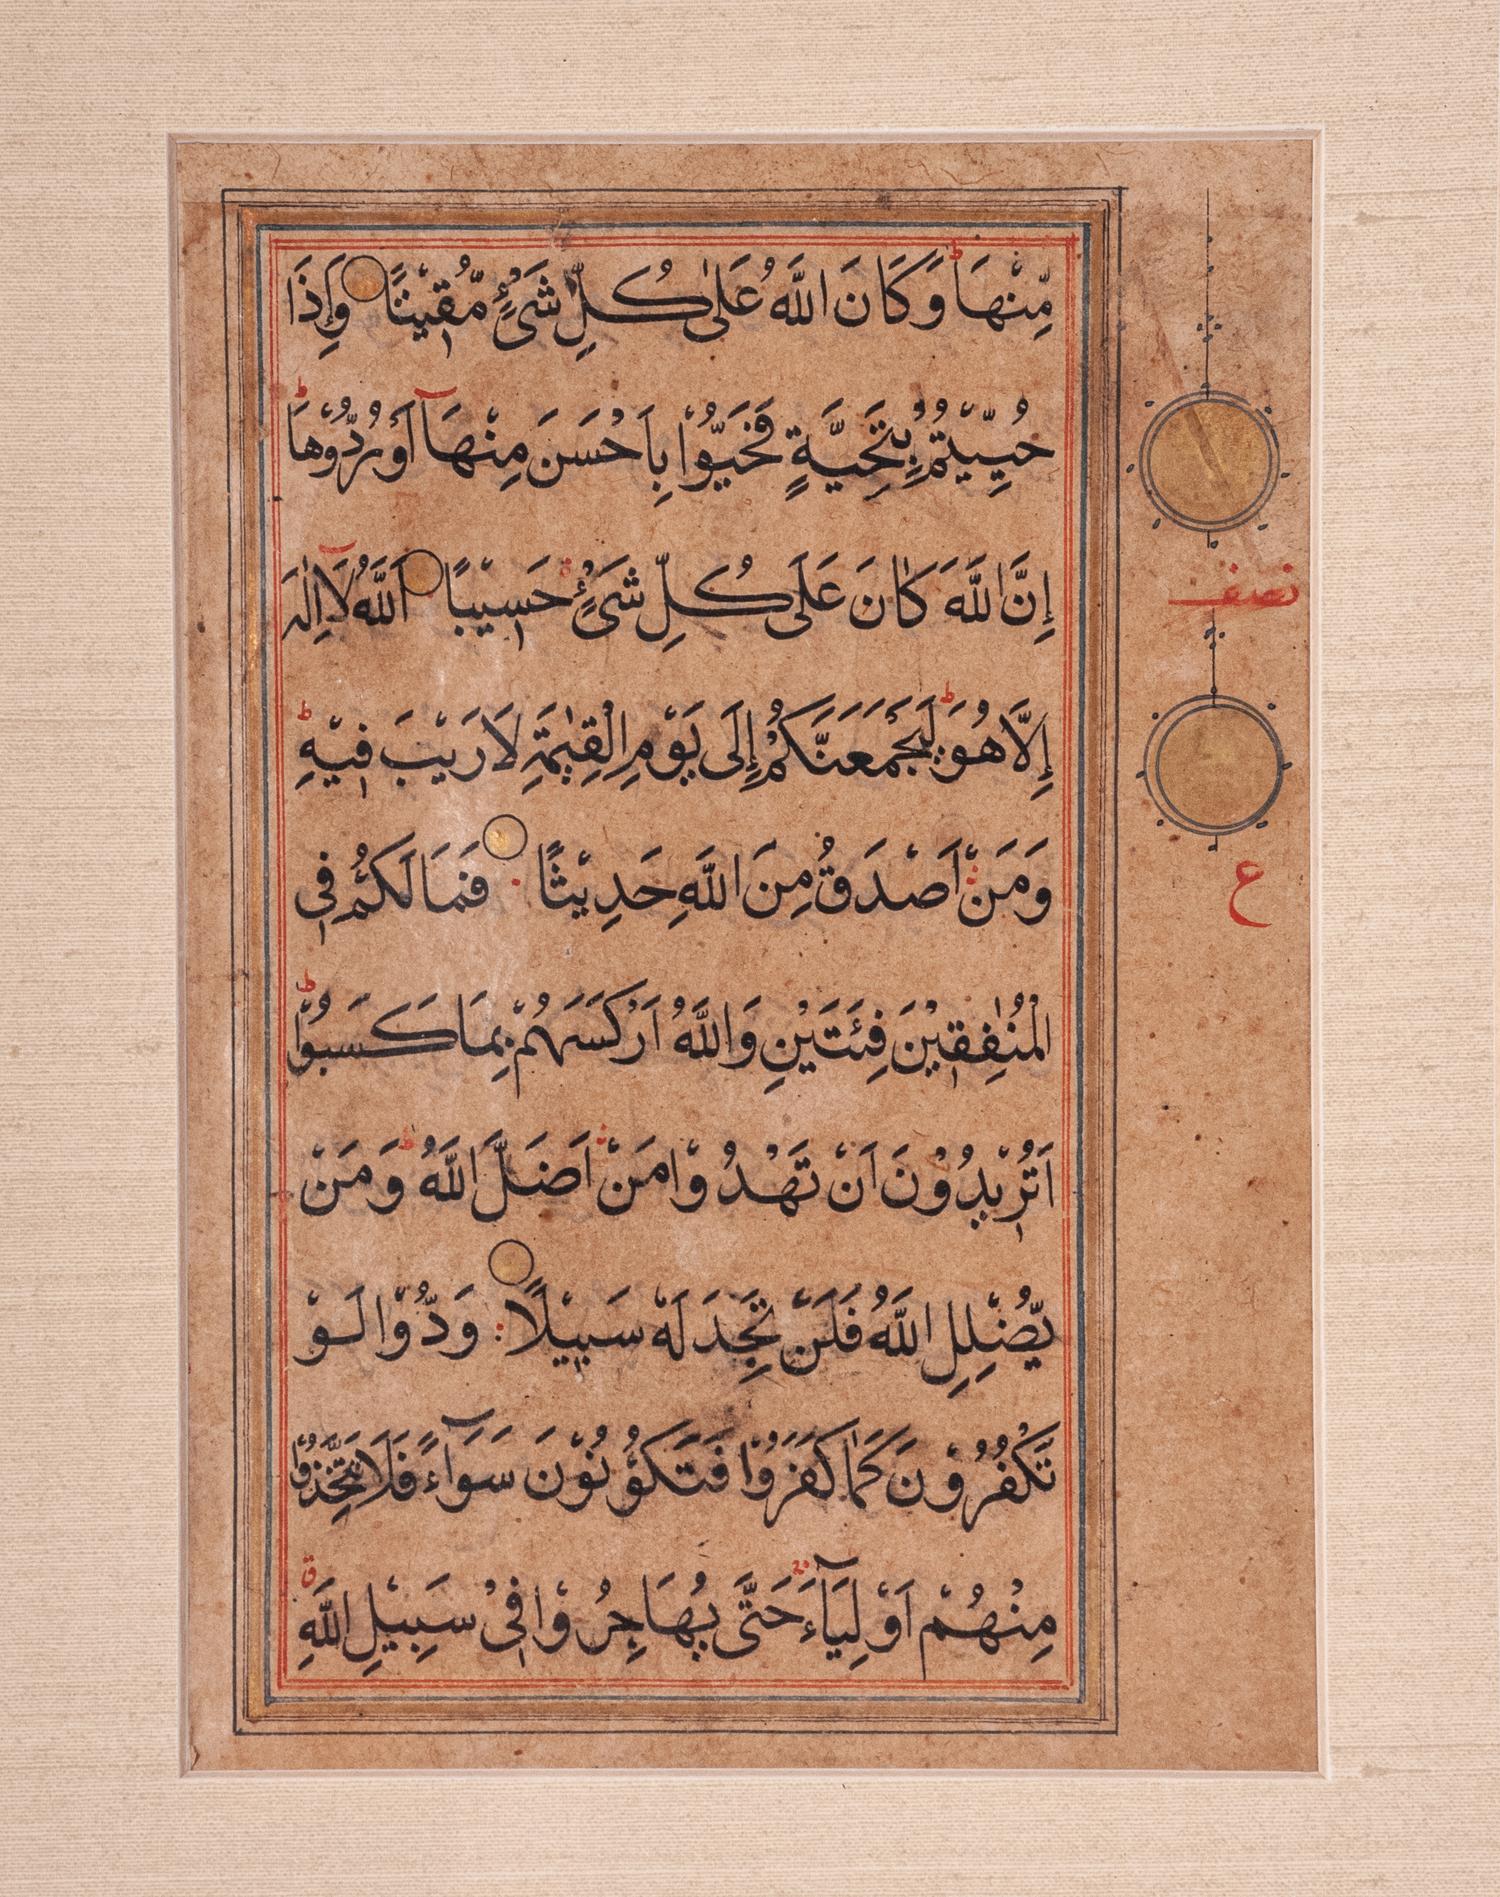 مِّنْهَا وَكَانَ اللَّهُ عَلٰى كُلِّ شَىْءٍ مُّقِيْتًا وَإِذَا
حُيِّيْتُمْ بِتَحِيَّةٍ فَحَيُّوْا بِاَحْسَنَ مِنْهَآ اَوْ رُدُّوْهَا
إِنَّ اللَّهَ كَانَ عَلَى كُلِّ شَىْءٍ حَسِيْبًا اَللَّهُ لَآ اِلٰهَ
إِلَّا هُوَ لَيَجْمَعَنَّكُمْ إِلَى يَوْمِ الْقِيٰمَةِ لَا رَيْبَ فِيْهِ
وَمَنْ اَصْدَقُ مِنَ اللَّهِ حَدِيْثًا فَمَا لَكُمْ فِي
الْمُنٰفِقِيْنَ فِئَتَيْنِ وَاللَّهُ اَرْكَسَهُمْ بِمَا كَسَبُوْا
اَتُرِيْدُوْنَ اَنْ تَهْدُوْا مَنْ اَضَلَّ اللَّهُ وَمَنْ
يُّضْلِلِ اللَّهُ فَلَنْ تَجِدَ لَهٗ سَبِيْلًا وَدُّوْا لَوْ
تَكْفُرُوْنَ كَمَا كَفَرُوْا فَتَكُوْنُوْنَ سَوَآءً فَلَا تَتَّخِذُوْا
مِنْهُمْ اَوْلِيَآءَ حَتَّى يُهَاجِرُوْا فِىْ سَبِيْلِ اللَّهِ
نصف
ع